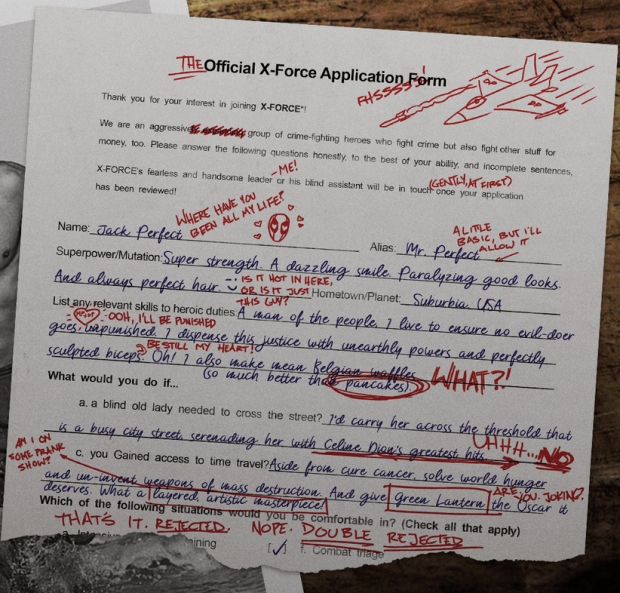 THE Official X-Force Application Form
FHSSSS!
Thank you for your interest in joining X-FORCE*!
We are an aggressive group of crime-fighting heroes who fight crime but also fight other stuff for
money, too. Please answer the following questions honestly, to the best of your ability, and incomplete sentences,
-ME!
(GENTLY, AT FIRST)
X-FORCE's fearless and handsome leader or his blind assistant will be in touch once your application
has been reviewed!
WHERE HAVE YOU
BEEN ALL MY LIFE?
A LITTLE
BASIC, BUT I'LL
ALLOW IT
Name: Jack Perfect
Alias: Mr. Perfect
Superpower/Mutation: Super strength. A dazzling smile. Paralyzing good looks.
And always perfect hair
IS IT HOT IN HERE,
OR IS IT JUST
THIS GUY?
Hometown/Planet: Suburbia, USA
List any relevant skills to heroic duties: A man of the people, I live to ensure no evil-doer
OOH, I'LL BE PUNISHED
goes unpunished. I dispense this justice with unearthly powers and perfectly
BE STILL MY HEART!
sculpted biceps. Oh! I also make mean Belgian waffles
(so much better than pancakes)
WHAT?!
What would you do if...
a. a blind old lady needed to cross the street? I'd carry her across the threshold that
is a busy city street, serenading her with Celine Dion's greatest hits.
UHHH... NO
AM I ON
SOME PRANK
SHOW?
c. you Gained access to time travel? Aside from cure cancer, solve world hunger
and un-invent weapons of mass destruction. And give Green Lantern the Oscar it
ARE YOU JOKING?
deserves. What a layered, artistic masterpiece!
Which of the following situations would you be comfortable in? (Check all that apply)
THAT'S IT. REJECTED. NOPE. DOUBLE REJECTED
[✓] f. Combat triage